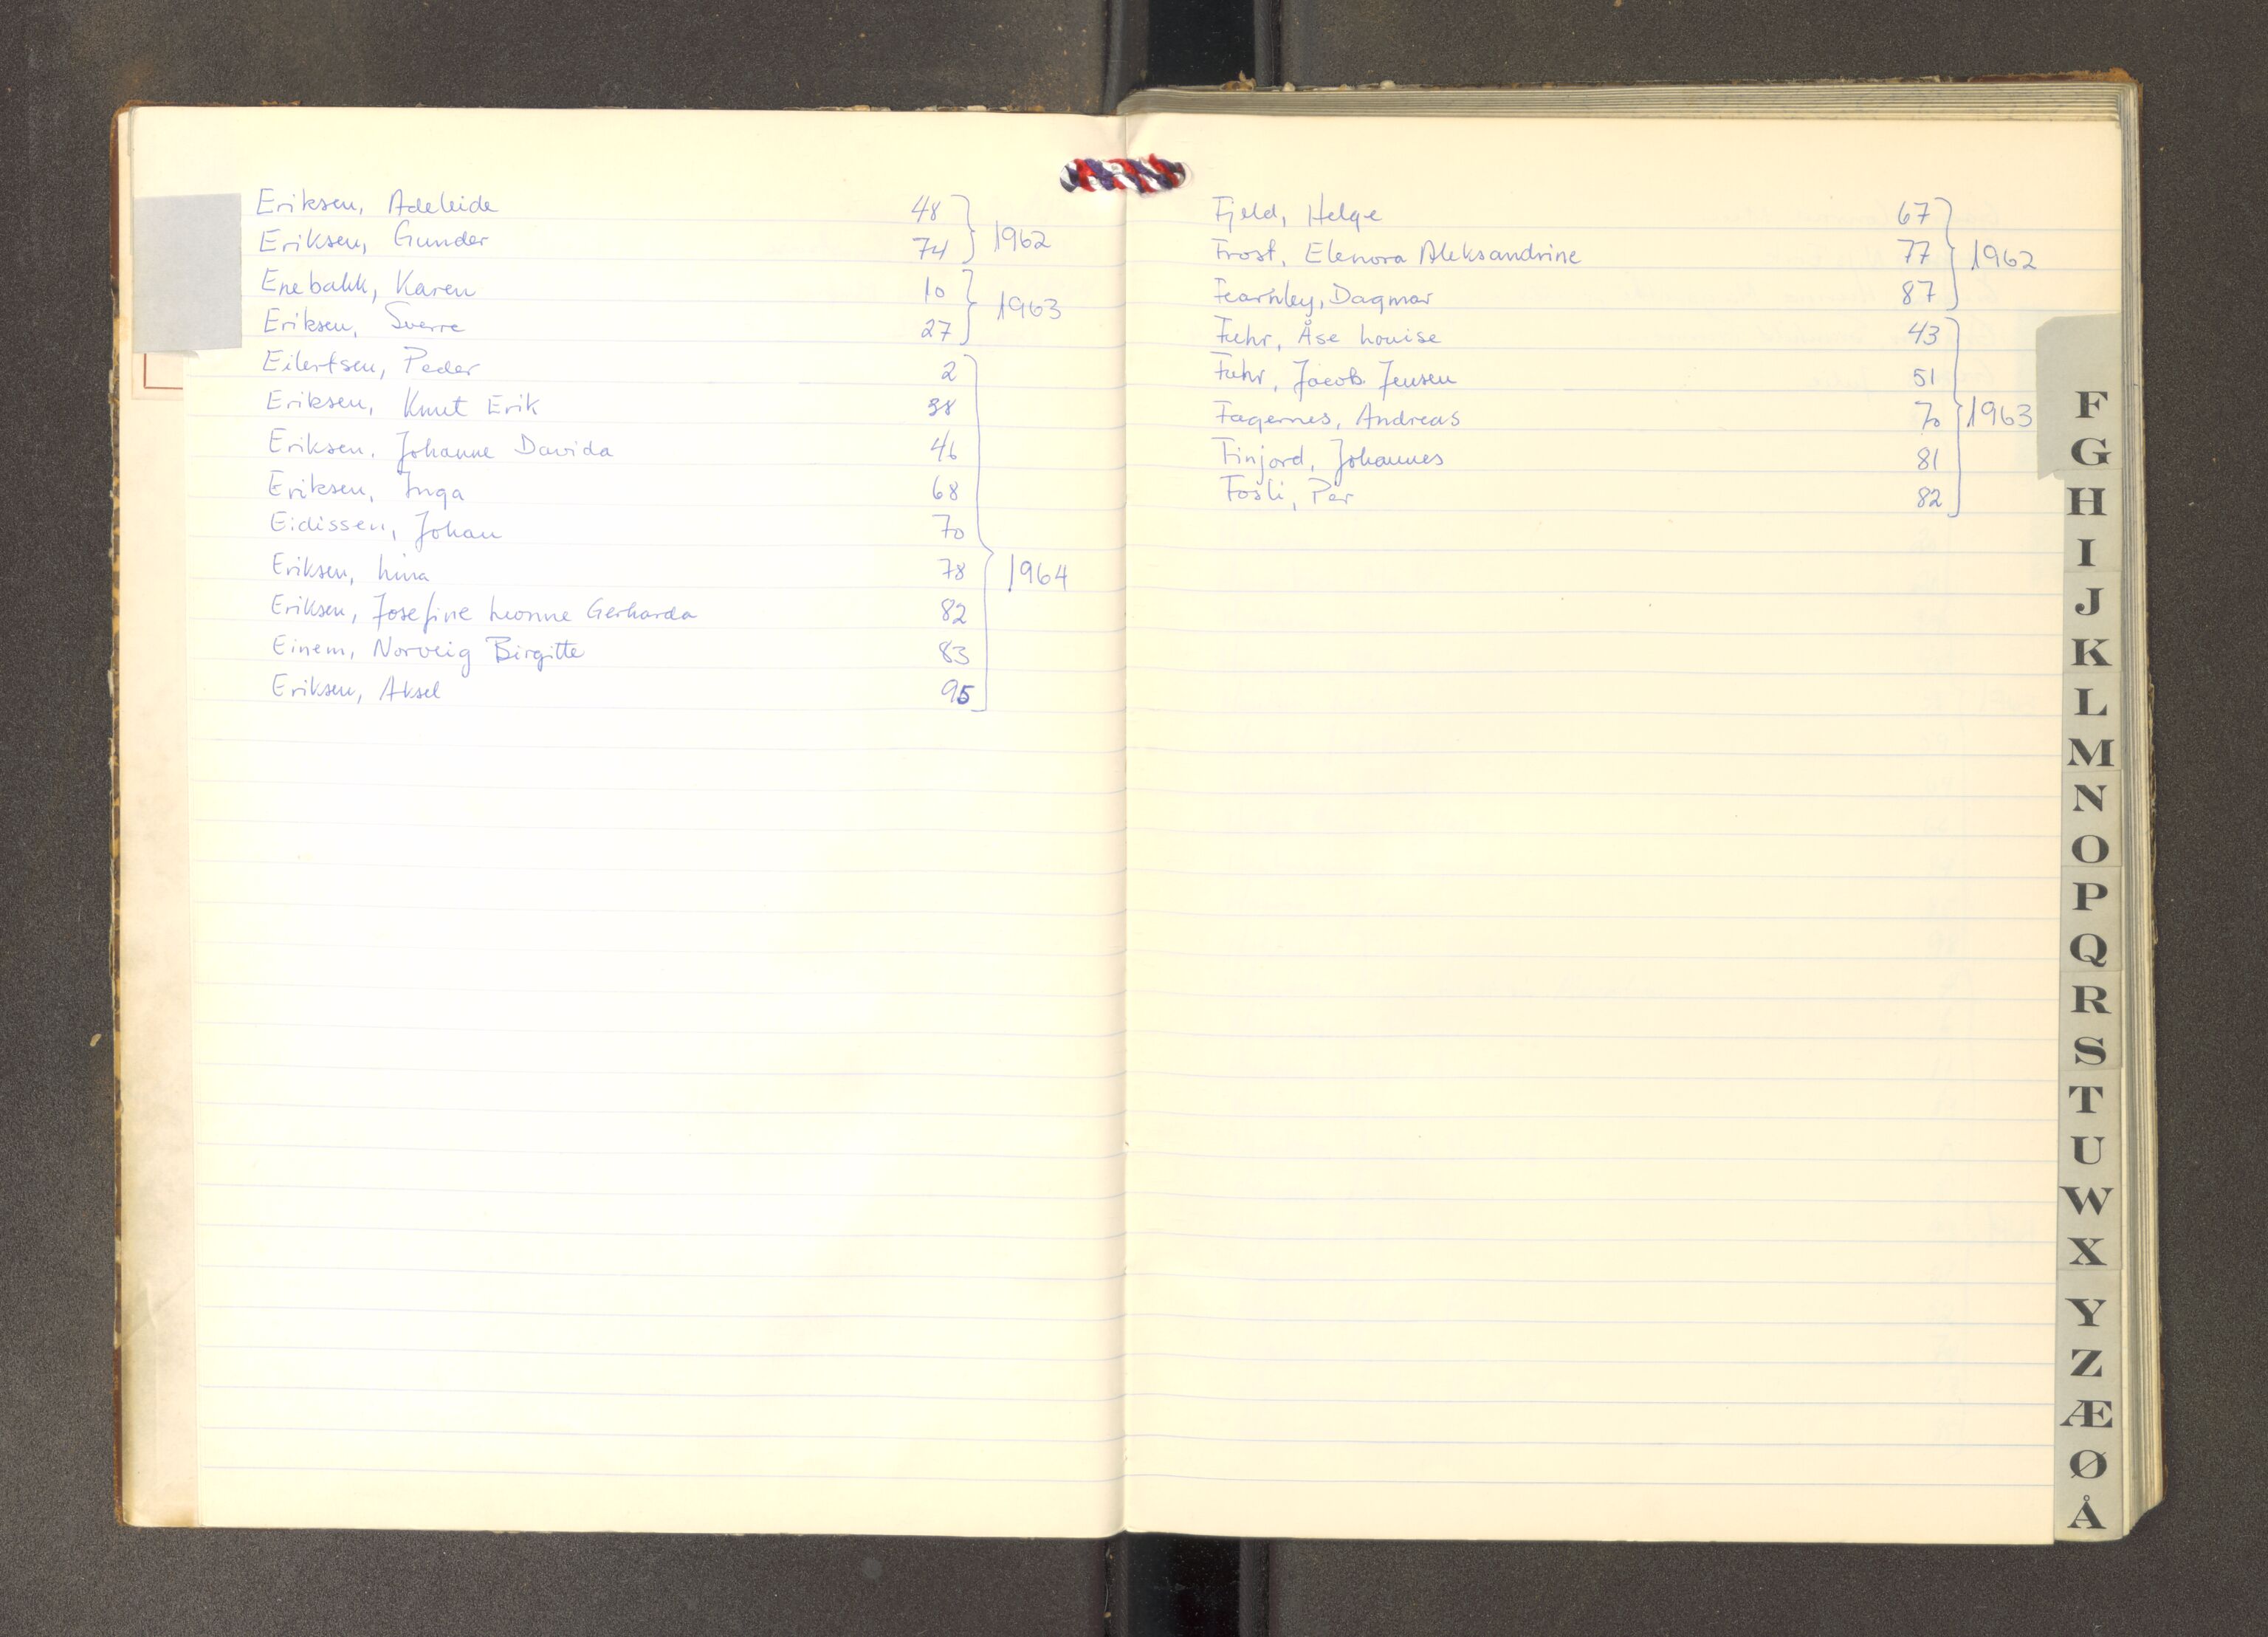 Eriksen, Adeleide 48
Eriksen, Gunder 74
1962
Enebakk, Karen 10
Eriksen, Sverre 27
1963
Eilertsen, Peder 2
Eriksen, Knut Erik 38
Eriksen, Johanne Davida 46
Eriksen, Inga 68
Eidissen, Johan 70
Eriksen, Lina 78
Eriksen, Josefine Leonne Gerharda 82
Einem, Norveig Birgitte 83
Eriksen, Aksel 95
1964
Fjeld, Helge 67
Frost, Elenora Aleksandrine 77
Fearnley, Dagmar 87
1962
Fuhr, Åse Louise 43
Fuhr, Jacob Jensen 51
Fagernes, Andreas 70
Finjord, Johannes 81
Fosli, Per 82
1963
F
G
H
I
J
K
L
M
N
O
P
Q
R
S
T
U
W
X
Y
Z
Æ
Ø
Å